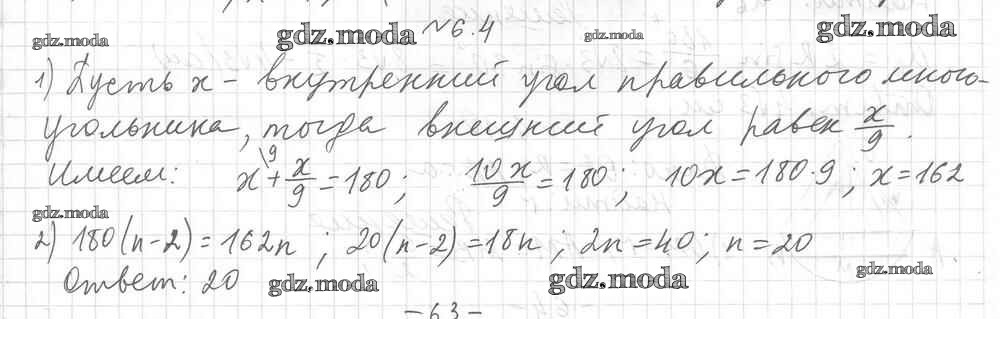 №6.4
gdz.moda gdz.moda gdz.moda gdz.moda
1) Пусть x – внутренний угол правильного много-
угольника, тогда внешний угол равен x/9.
Имеем: x\9 + x/9 = 180; 10x/9 = 180; 10x = 180·9; x = 162
gdz.moda
2) 180(n-2) = 162n; 20(n-2) = 18n; 2n = 40; n = 20
Ответ: 20
gdz.moda gdz.moda gdz.moda
– 63 –